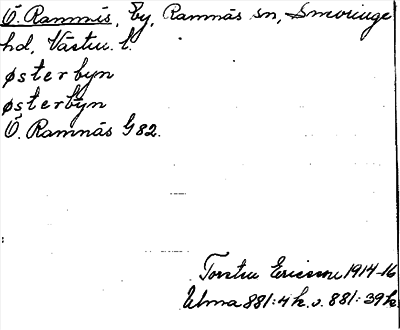 Ö. Ramnäs, by, Ramnäs sn, Snevringe
hd, Västm. l.
østerbyn
østerbyn
Ö. Ramnäs G 82.
Torsten Ericsson 1914-16
Ulma 881:4 h. o. 881:39 h